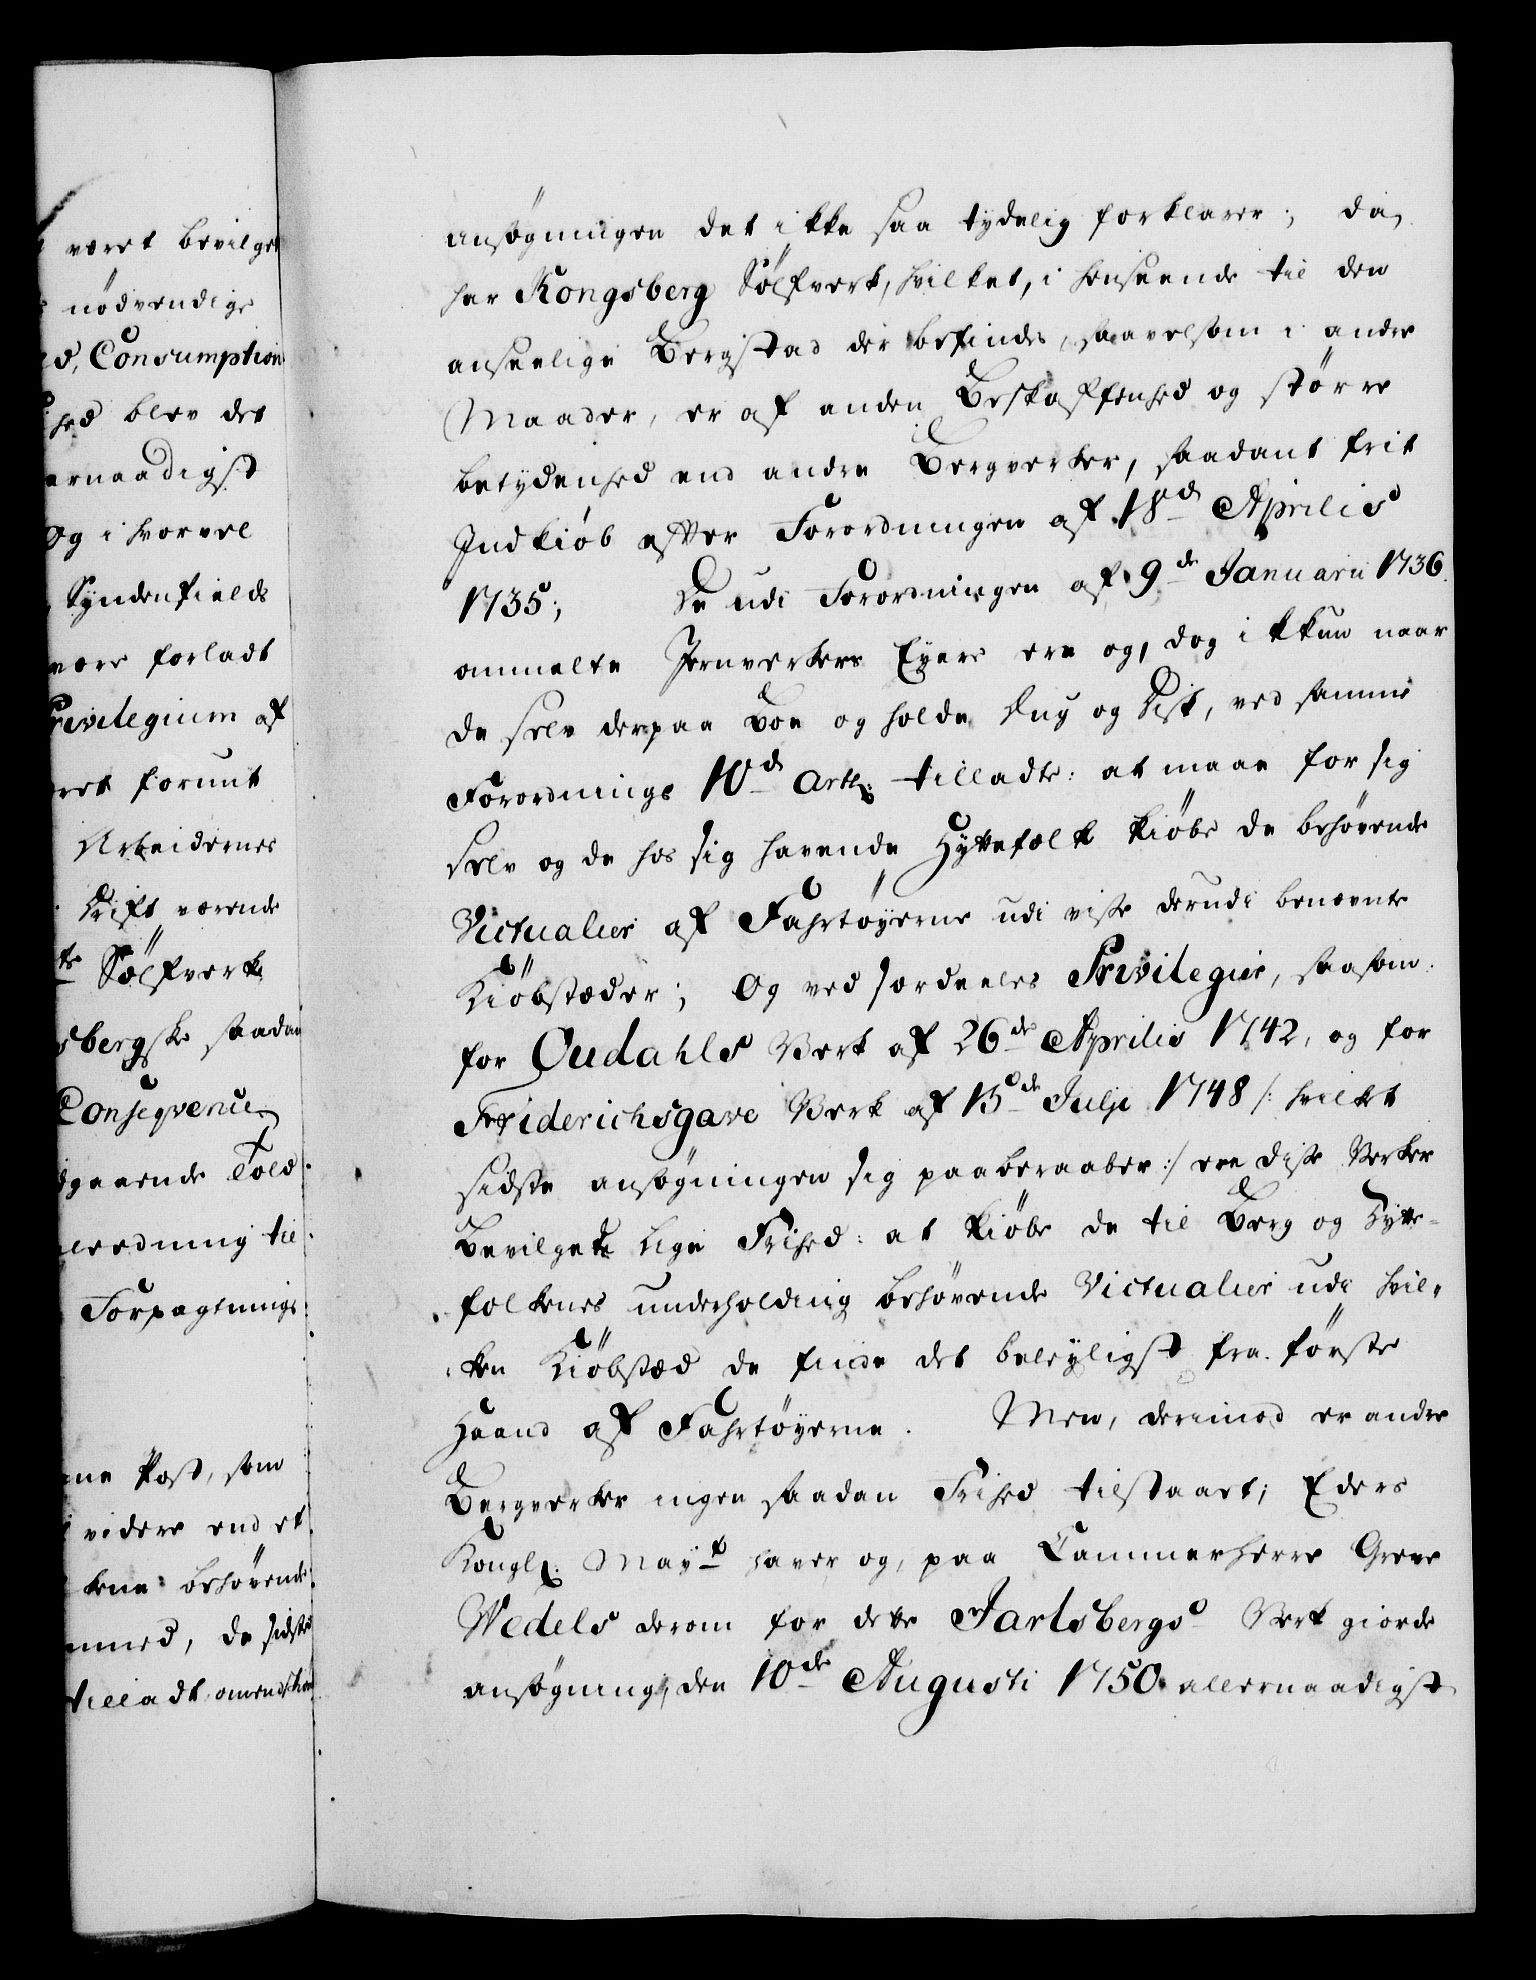 været bevilget
nödvendige
Consumptions
hed blev det
ernaadigst
Og i hvorvel
Syndenfields
være forladt
Privilegium af
forunt
Arbeidernes
Drift værende
Sölfverk
sbergske saadan
Conseqvence
gaaende Told
til
Forpagtnings
Post, som
videre end et
behövende
da sidste
tilladt, omendskiönt
ansögningen det ikke saa tydelig forklarer; da,
har Kongsberg Sölfverk, hvilket, i henseende til den
anseelige Bergstad der befindes, saavelsom i andre
Maader, er af anden Beskaffenhed og större
betydenhed end andre Bergverker, saadant frit
Indkiöb efter Forordningen af 18de Aprilis
1735; De udi Forordningen af 9de Januarii 1736.
ommelte Jernverkers Eyere ere og, dog ikkun naar
de selv derpaa Boe og holde Dug og Disk, ved samme
Forordnings 10de Artl: tilladte: at maae for sig
selv og de hos sig havende Hyttefolk kiöbe de behövende
Victualier af Fahrtöyerne udi visse derudi benævnte
Kiöbstæder; Og ved særdeeles Privilegier, saasom:
for Oudahls Verk af 26de Aprilis 1742, og for
Friderichsgave Verk af 15de Julji 1748 /: hvilket
sidste ansögningen sig paaberaaber :/ ere disse Verker
Bevilgede lige Frihed: at kiöbe de til Berg og Hytte-
folkenes underholding behövende Victualier udi hvil-
ken Kiöbstæd de finde det beleyligst fra förste
Haand af Fahrtöyerne. Men, derimod er andre
Bergverker ingen saadan Frihed tilstaaet; Eders
Kongl: Mayt haver og, paa Cammerherre Greve
Wedels derom for dette Jarlsbergs Verk giorde
ansögning, den 10de Augusti 1750 allernaadigst